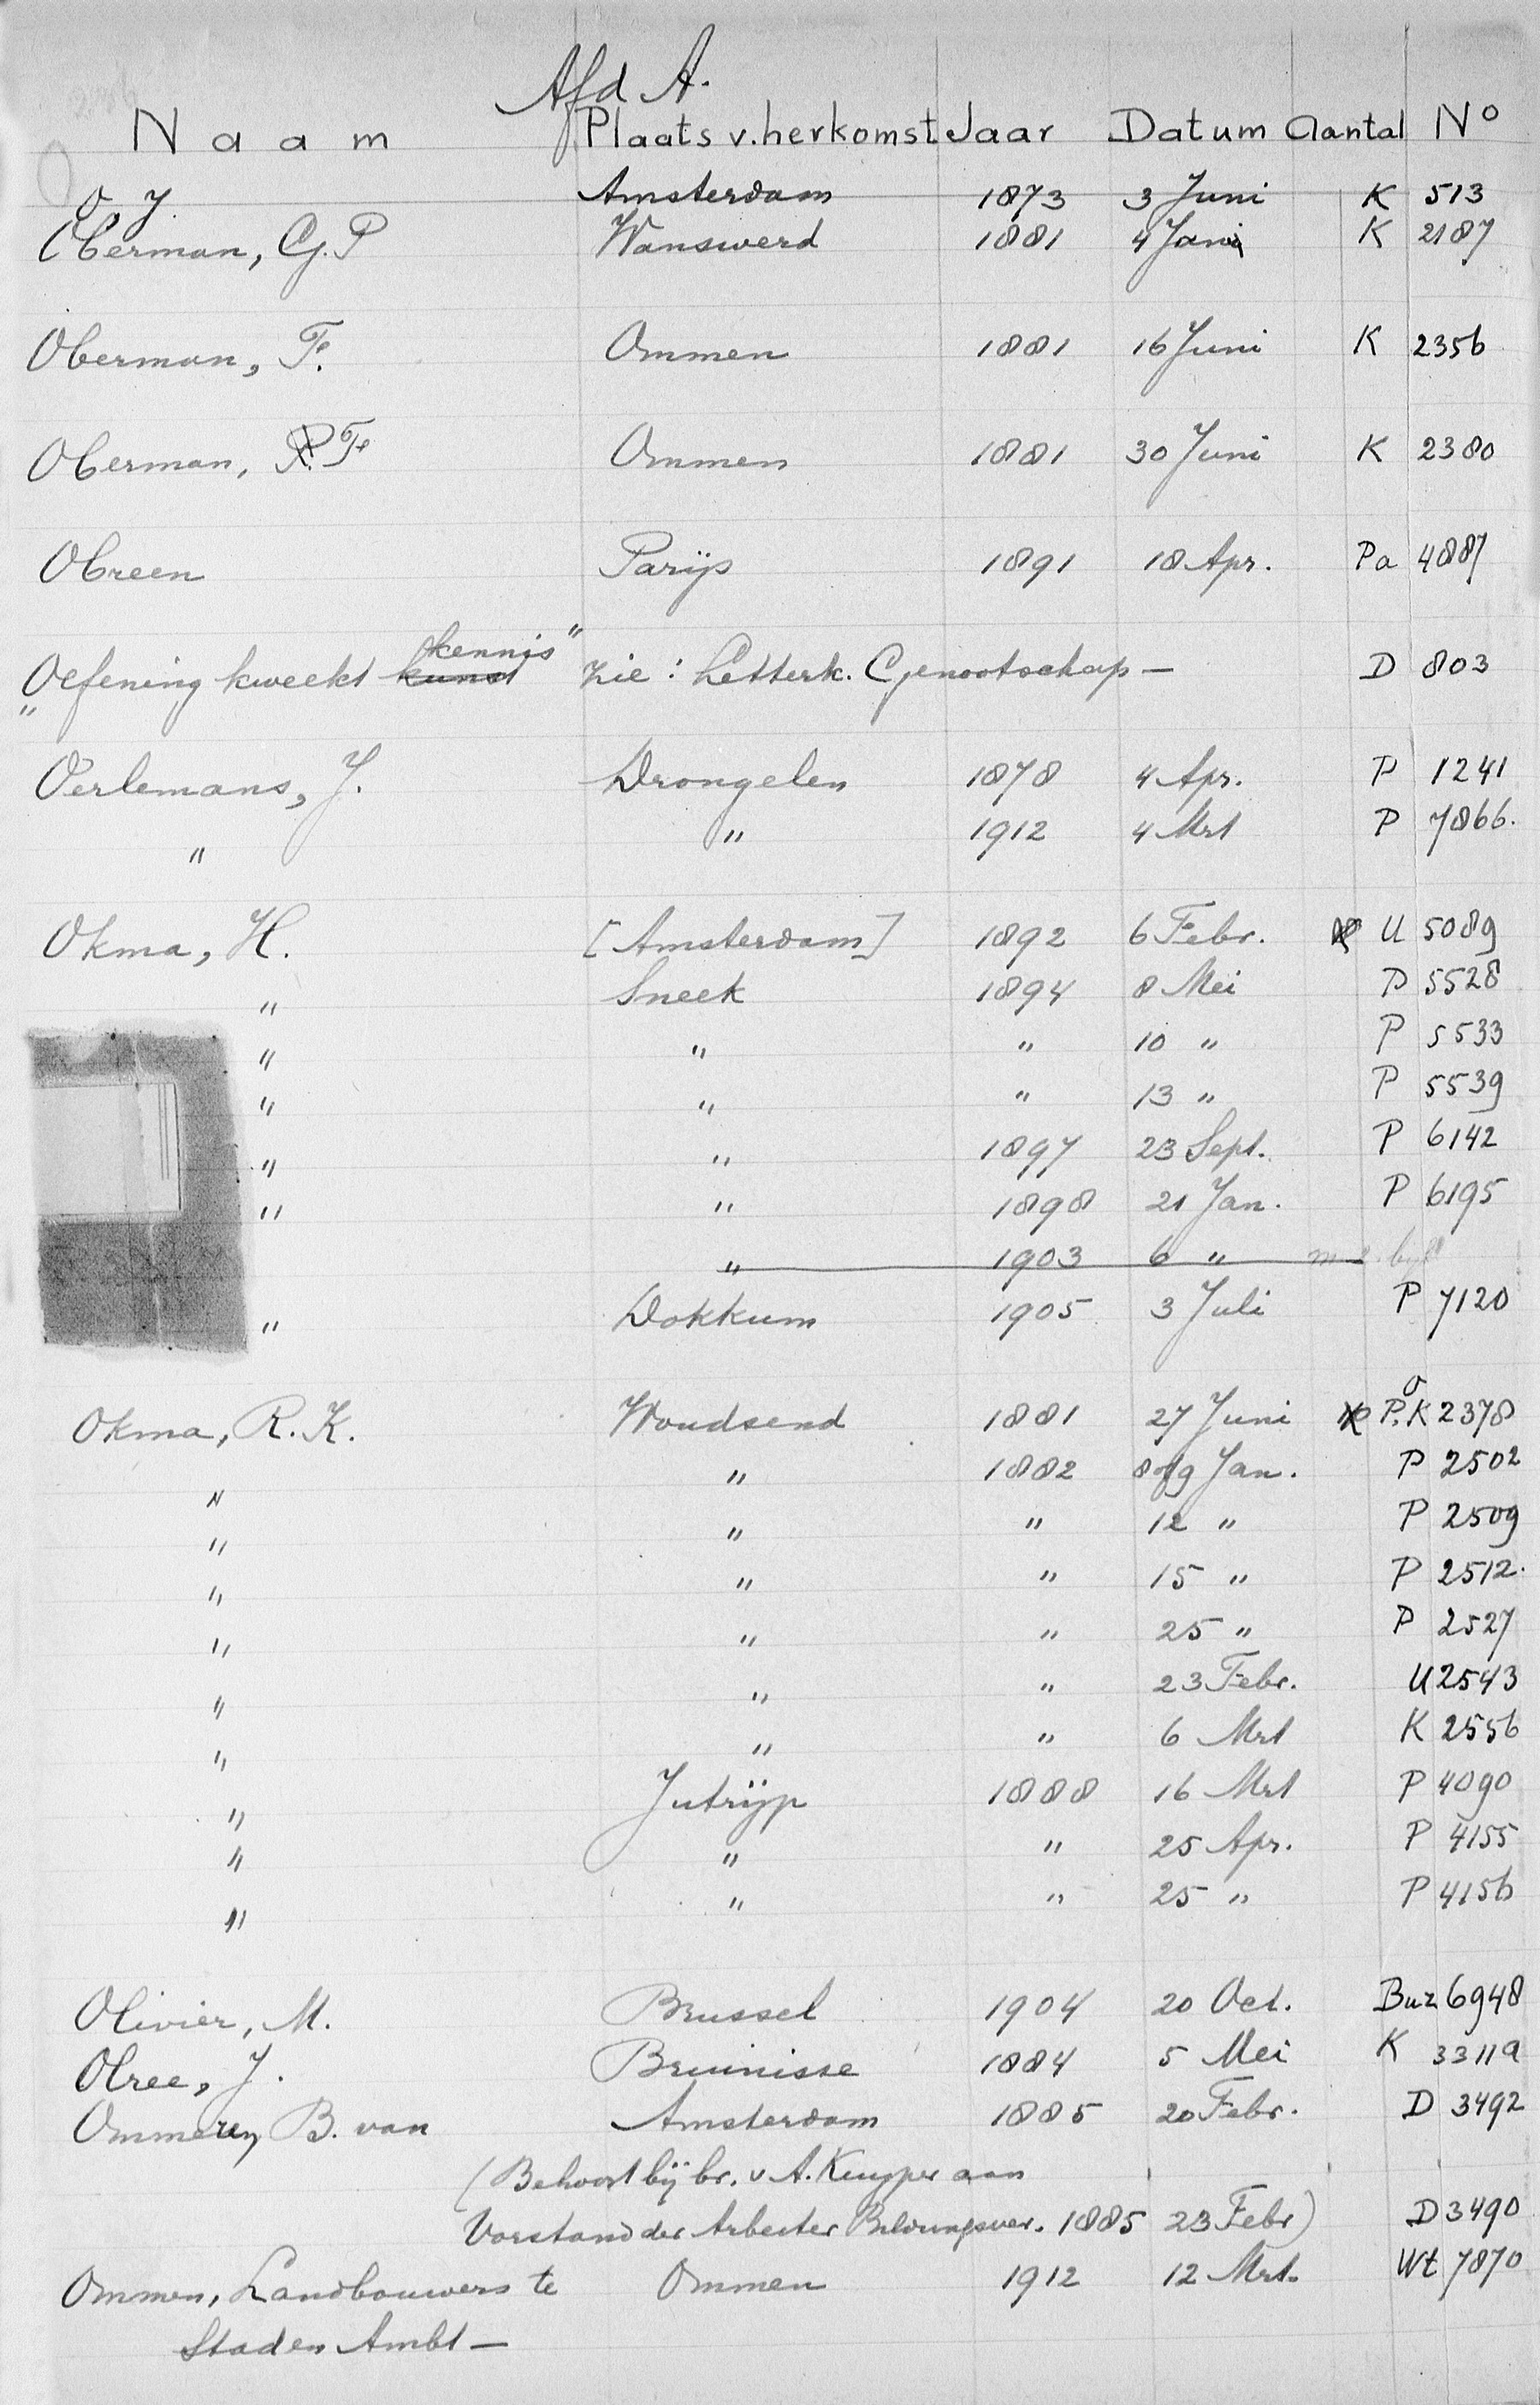 Afd A.
Naam Plaats v. herkomst Jaar Datum Aantal No
O J. Amsterdam 1873 3 Juni K 513
Oberman, G. P Wanswerd 1881 4 Jan K 2187
Oberman, F. Ommen 1881 16 Juni K 2356
Oberman, F Ommen 1881 30 Juni K 2380
Obreen Parijs 1891 18 Apr. Pa 4887
„Oefening kweekt kunst kennis" zie: Letterk. Genootschap — D 803
Oerlemans, J. Drongelen 1878 4 Apr. P 1241
" " 1912 4 Mrt P 7866.
Okma, H. [Amsterdam] 1892 6 Febr. U 5089
" Sneek 1894 8 Mei P 5528
" " " 10 " P 5533
" " " 13 " P 5539
" " 1897 23 Sept. P 6142
" " 1898 21 Jan. P 6195
" 1903 6 "
" Dokkum 1905 3 Juli P 7120
Okma, R. K. Woudsend 1881 27 Juni P. K 2378
" " 1882 8 of 9 Jan. P 2502
" " " 12 " P 2509
" " " 15 " P 2512.
" " " 25 " P 2527
" " " 23 Febr. U 2543
" " " 6 Mrt K 2556
" Jutrijp 1888 16 Mrt P 4090
" " " 25 Apr. P 4155
" " " 25 " P 4156
Olivier, M. Brussel 1904 20 Oct. Buz 6948
Olree, J. Bruinisse 1884 5 Mei K 3311a
Ommeren, B. van Amsterdam 1885 20 Febr. D 3492
(Behoort bij br. v A. Kuyper aan
Vorstand der Arbeiter Bildungsver. 1885 23 Febr) D 3490
Ommen, Landbouwers te Ommen 1912 12 Mrt. Wt 7870
Stad en Ambt —